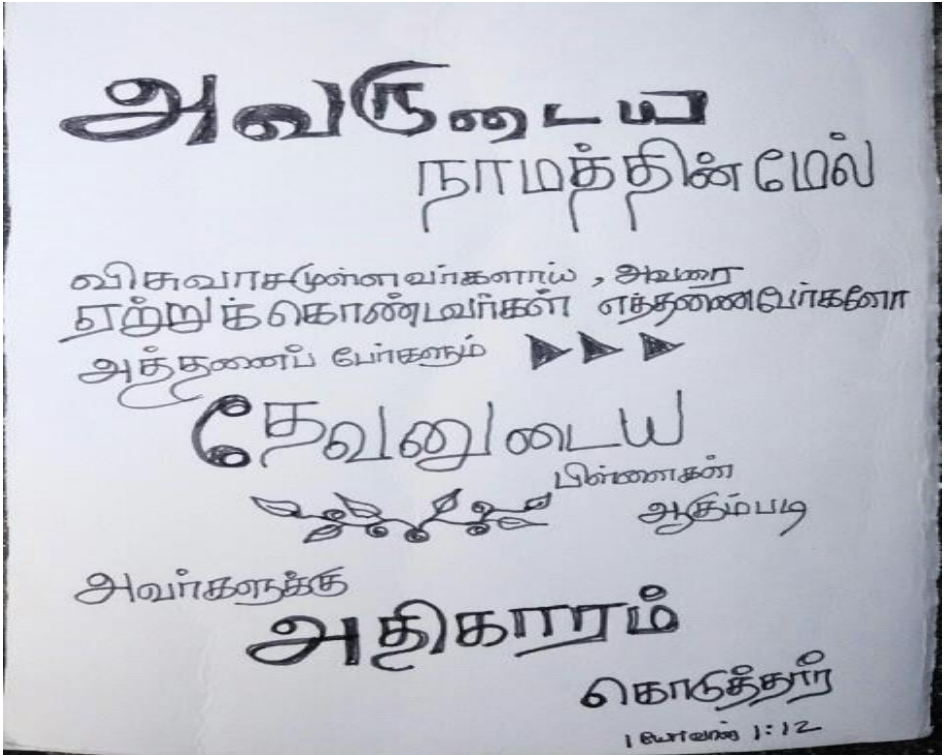 அவருடைய
நாமத்தின் மேல்
விசுவாசமுள்ளவர்களாய், அவரை
ஏற்றுக்கொண்டவர்கள் எத்தனைபேர்களோ
அத்தனைப் பேர்களும்
தேவனுடைய
பிள்ளைகள்
ஆகும்படி
அவர்களுக்கு
அதிகாரம்
கொடுத்தார்
1 யோவான் 1:12